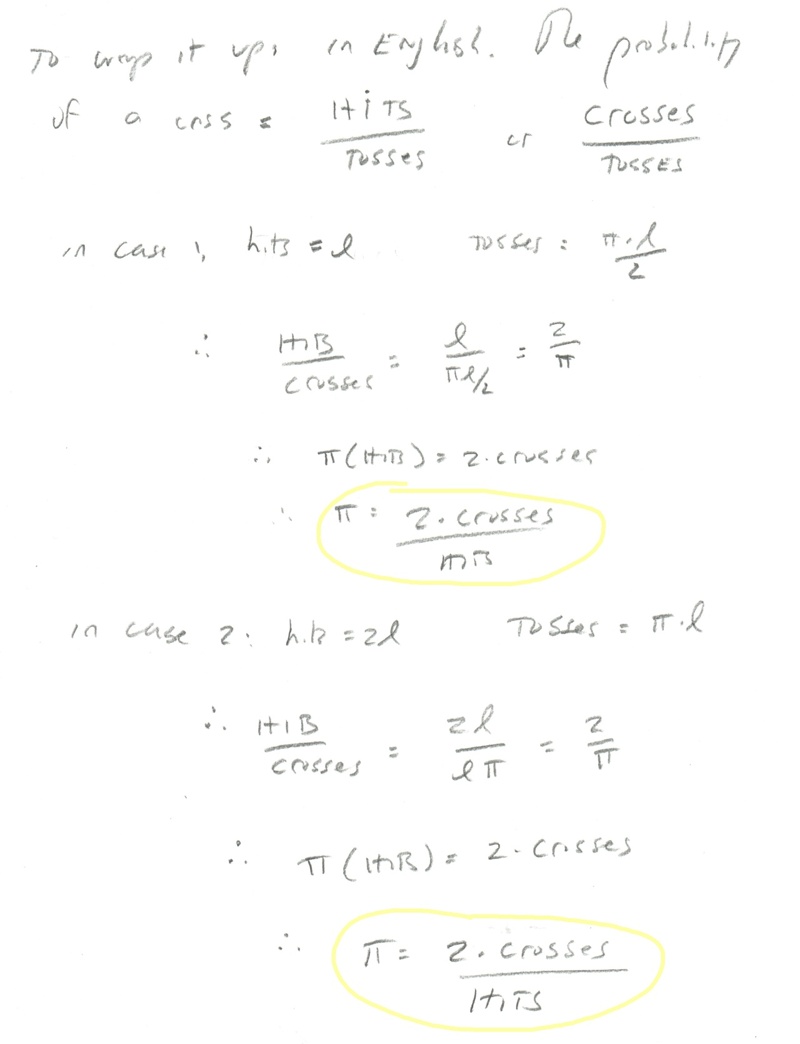 To wrap it up, in English. The probability
of a cross = HiTS / Tosses or Crosses / TOSSES
in case 1, hits = l Tosses = π·l / 2
∴ Hits / crosses = l / πl/2 = 2 / π
∴ π(Hits) = 2·crosses
∴ π = 2·crosses / Hits
in case 2: hits = 2l Tosses = π·l
∴ Hits / crosses = 2l / lπ = 2 / π
∴ π(Hits) = 2·crosses
∴ π = 2·crosses / HiTS